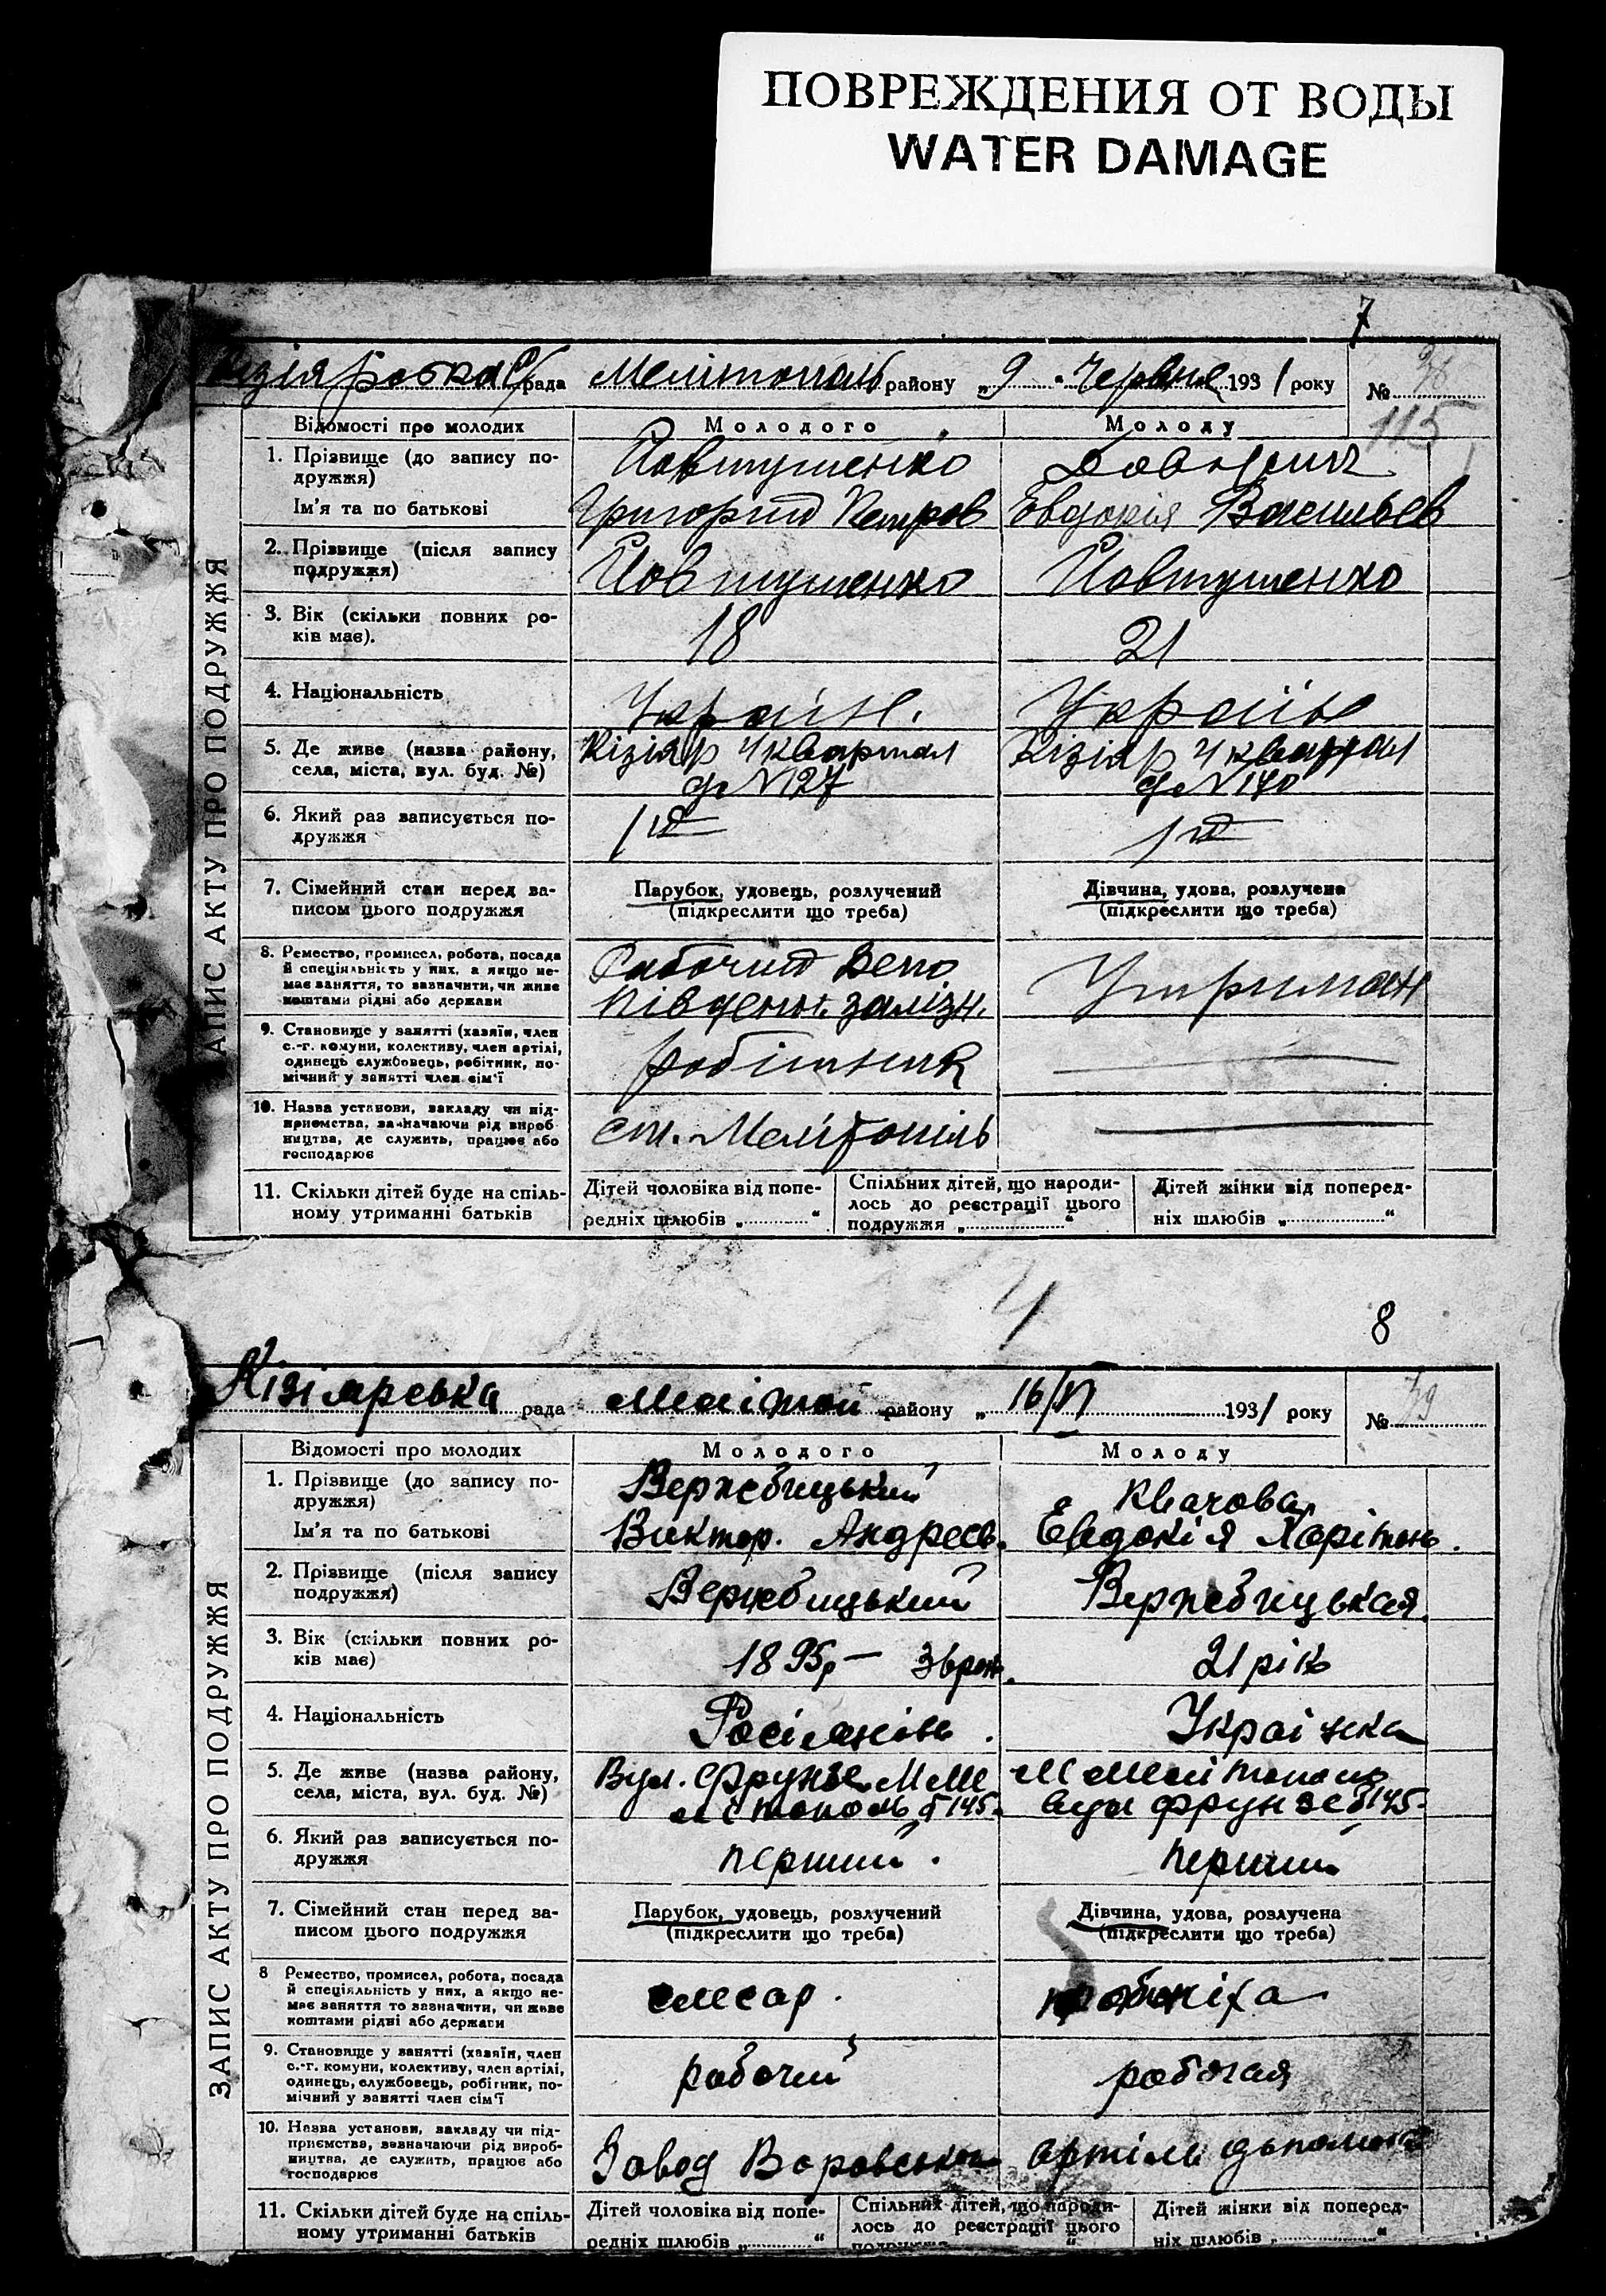 ПОВРЕЖДЕНИЯ ОТ ВОДЫ
WATER DAMAGE
7
рада Мелітополь району „9" Червня 1931 року № 78
115
АПИС АКТУ ПРО ПОДРУЖЖЯ
Відомості про молодих Молодого Молоду
1. Прізвище (до запису подружжя) Йовтушенко
Ім'я та по батькові Григорий Петров Евдокія Васильев
2. Прізвище (після запису подружжя) Йовтушенко Йовтушенко
3. Вік (скільки повних років має). 18 21
4. Національність Україн. Україн
5. Де живе (назва району, села, міста, вул. буд. №) Кізіяр 4 квартал д N 127 Кізіяр 4 квартал д N 140
6. Який раз записується подружжя 1й 1й
7. Сімейний стан перед записом цього подружжя Парубок, удовець, розлучений (підкреслити що треба) Дівчина, удова, розлучена (підкреслити що треба)
8. Ремество, промисел, робота, посада й спеціяльність у них, а якщо немає заняття, то зазначити, чи живе коштами рідні або держави Рабочий Депо Південн. залізн. Утриман
9. Становище у занятті (хазяїн, член с.-г. комуни, колективу, член артілі, одинець службовець, робітник, помічний у занятті член сім'ї робітник
10. Назва установи, закладу чи підприємства, зазначаючи рід виробництва, де служить, працює або господарює ст. Мелітопіль
11. Скільки дітей буде на спільному утриманні батьків Дітей чоловіка від попередніх шлюбів „ “ Спільних дітей, що народилось до реєстрації цього подружжя „ “ Дітей жінки від попередніх шлюбів „ “
4
8
Кізіярська рада Мелітоп району „16/VI 1931 року № 79
ЗАПИС АКТУ ПРО ПОДРУЖЖЯ
Відомості про молодих Молодого Молоду
1. Прізвище (до запису подружжя) Вержебицький Квачова
Ім'я та по батькові Виктор. Андреев. Евдокія Харітонь.
2. Прізвище (після запису подружжя) Вержебицький Вержебицькая
3. Вік (скільки повних років має) 1895р — 21 рік
4. Національність Росіянінь. Українка
5. Де живе (назва району, села, міста, вул. буд. №) Вул. Фрунзе М Мелістополь б 145. М Мелитополь вул Фрунзе б 145.
6. Який раз записується подружжя перший. перший
7. Сімейний стан перед записом цього подружжя Парубок, удовець, розлучений (підкреслити що треба) Дівчина, удова, розлучена (підкреслити що треба)
8 Ремество, промисел, робота, посада й спеціяльність у них, а якщо немає заняття то зазначити, чи живе коштами рідні або держави слесар.
9. Становище у занятті (хазяїн, член с.-г. комуни, колективу, член артілі, одинець, службовець, робітник, помічний у занятті член сім'ї рабочий рабочая
10. Назва установи, закладу чи підприємства, зазначаючи рід виробництва, де служить, працює або господарює Завод Воровського артіль
11. Скільки дітей буде на спільному утриманні батьків Дітей чоловіка від попередніх шлюбів „ “ Спільних дітей, що народилось до реєстрації цього подружжя „ “ Дітей жінки від попередніх шлюбів „ “